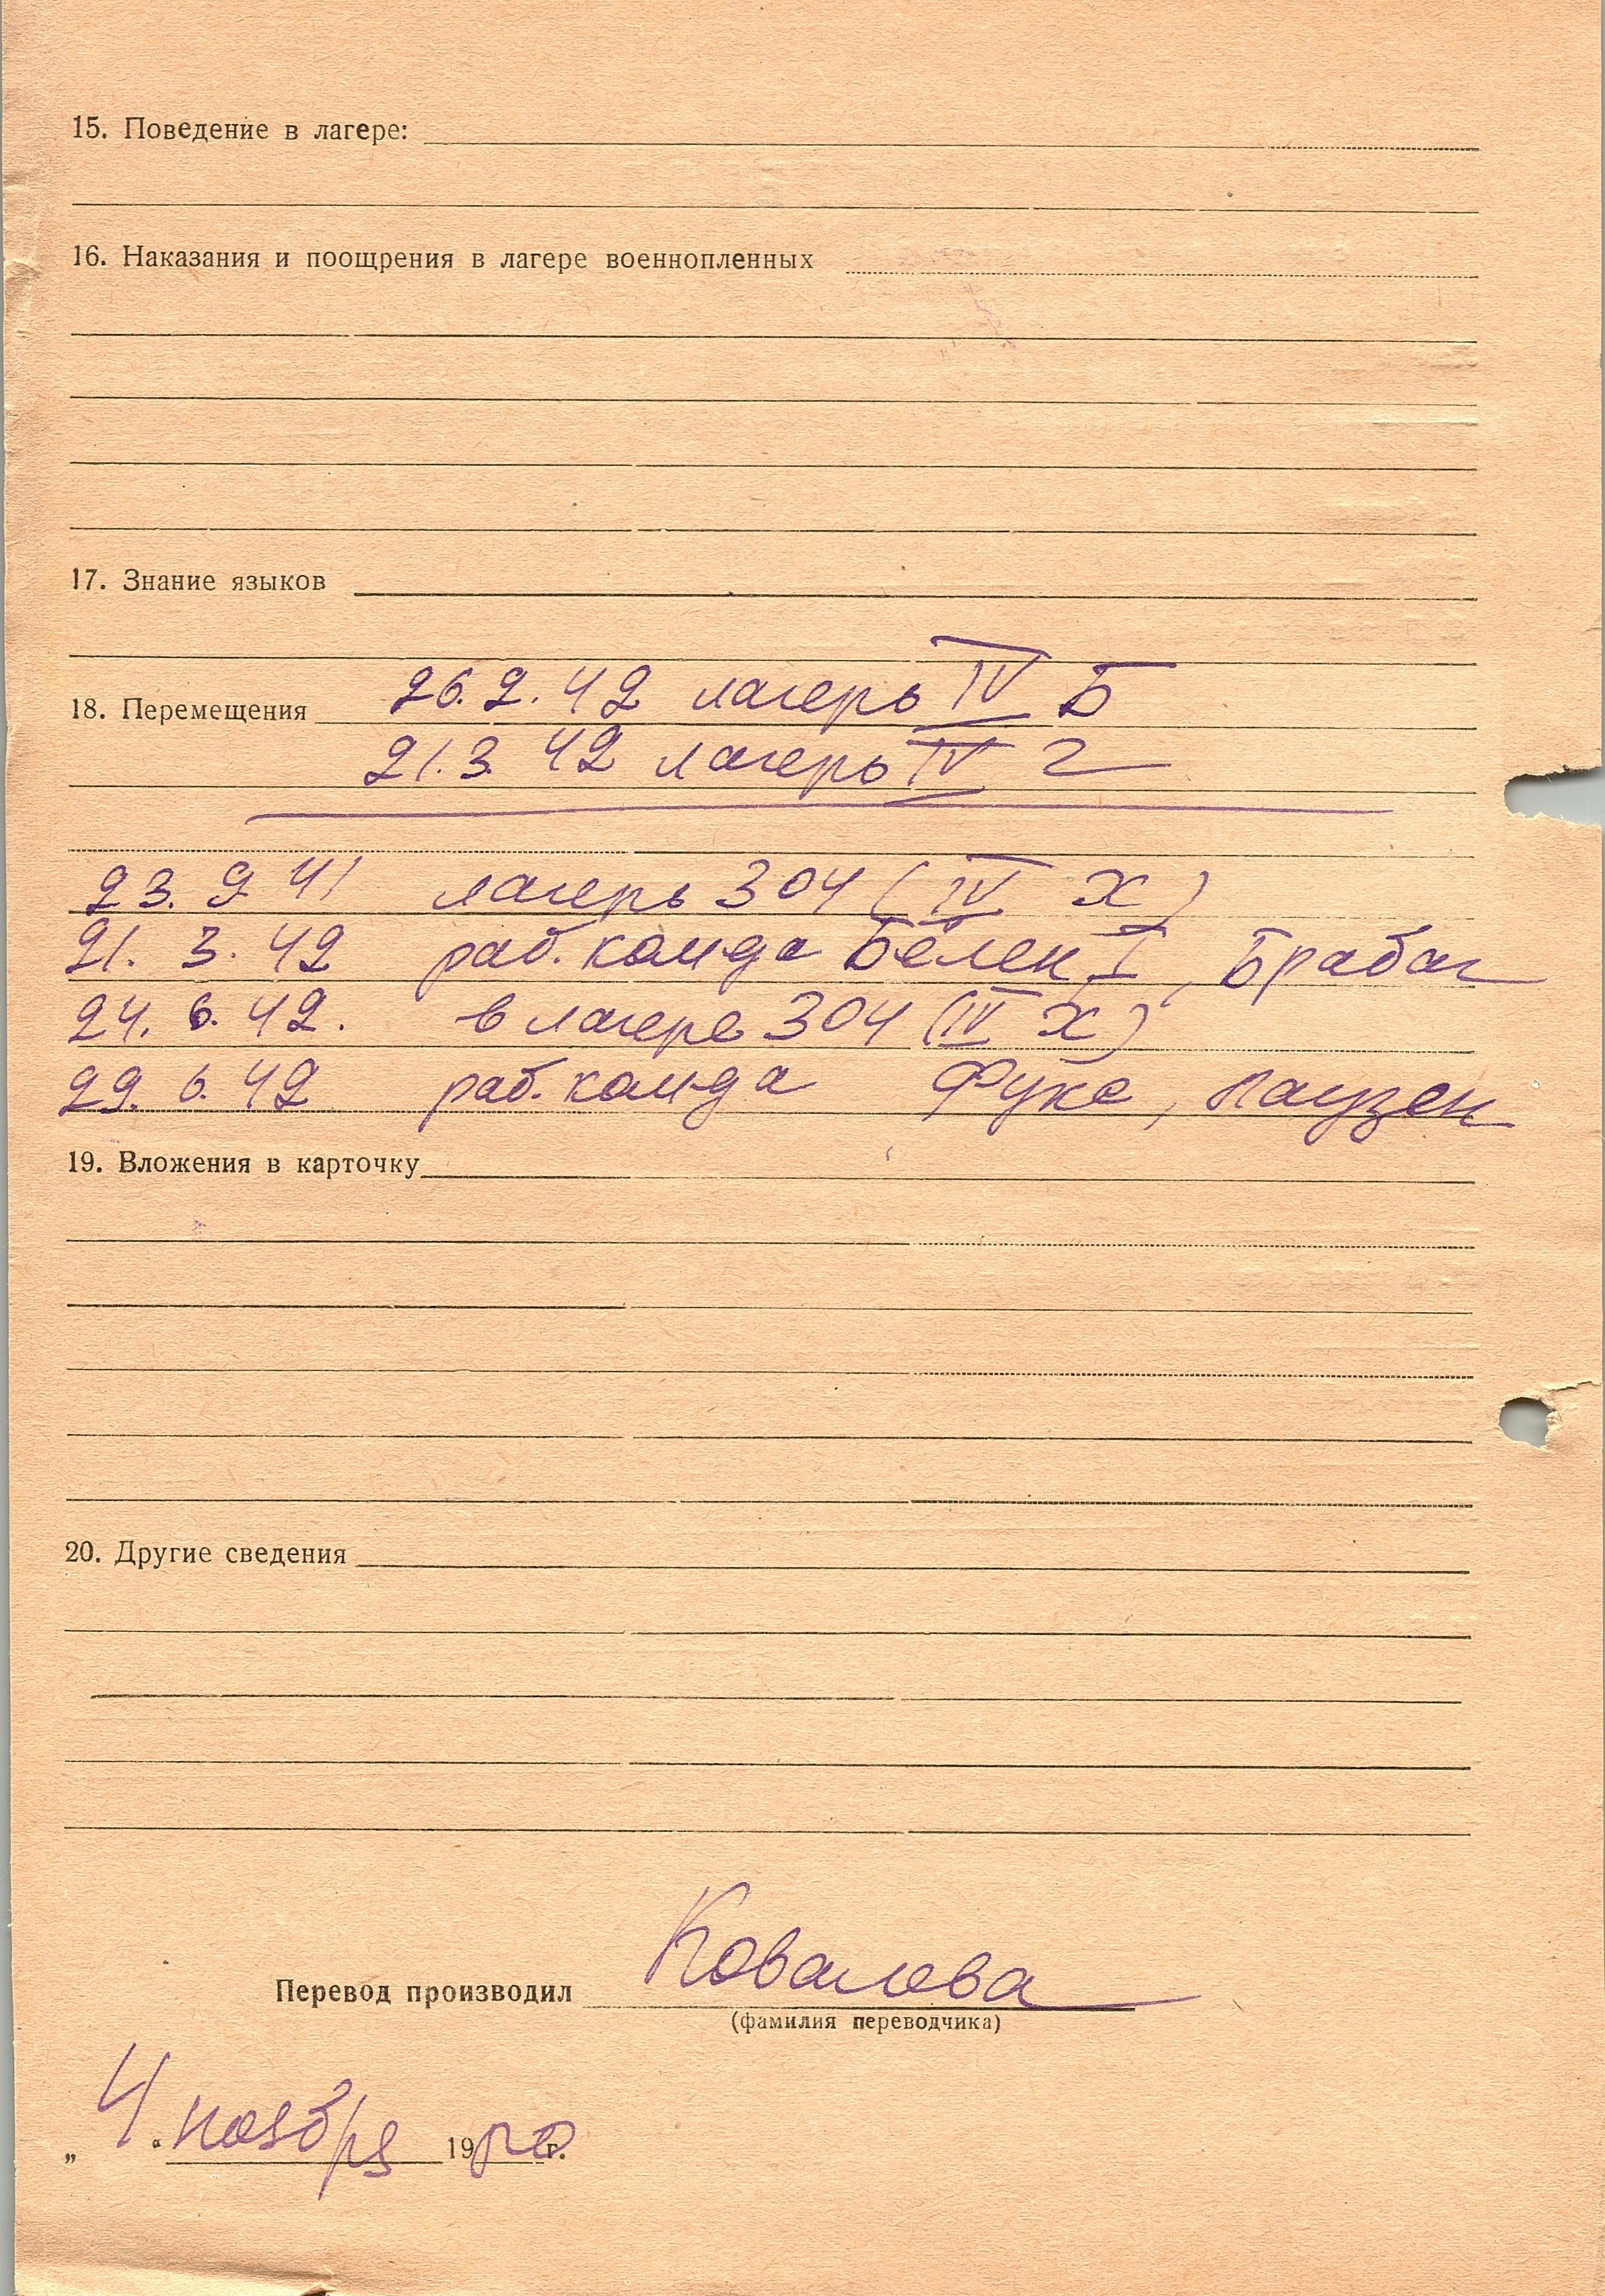 15. Поведение в лагере:
16. Наказания и поощрения в лагере военнопленных
17. Знание языков
26.2.42 лагерь IV Б
18. Перемещения
21.3.42 лагерь IV Г
23.9 41 лагерь 304 (IV X)
21.3.42 раб. комда Бёлен I, Брабаг
24.6.42. в лагере 304 (IV X)
29.6.42 раб. комда Фукс, Лаузен
19. Вложения в карточку
20. Другие сведения
Перевод производил Ковалева
(фамилия переводчика)
„4“ ноября 19 г.